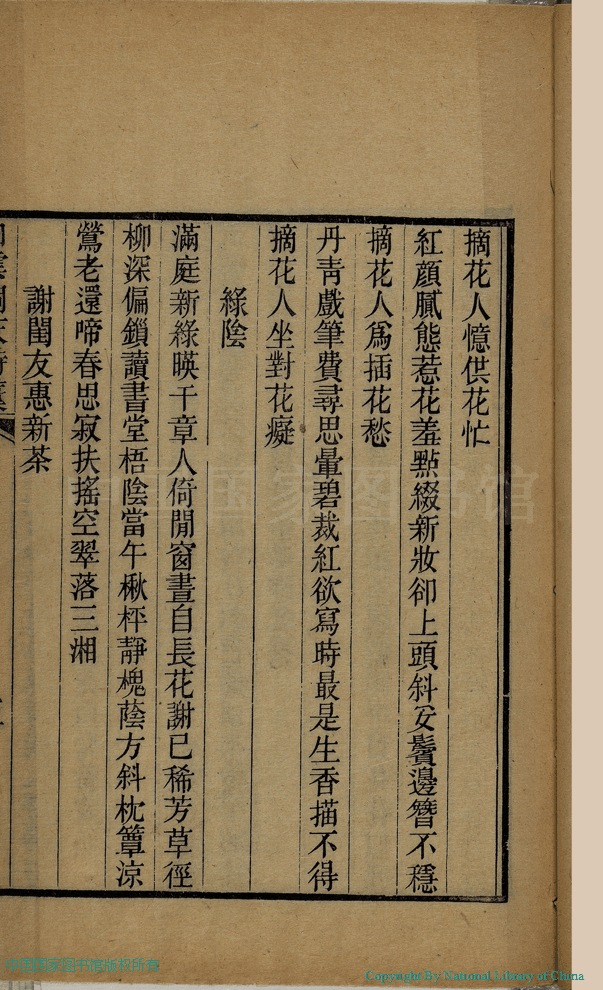 摘花人憶供花忙
紅顏膩態惹花羞點綴新妝卻上頭斜安鬢邊簪不穩
摘花人爲插花愁
丹青戲筆費尋思暈碧裁紅欲寫時最是生香描不得
摘花人坐對花癡
綠陰
滿庭新綠暎千章人倚閒窗晝自長花謝已稀芳草徑
柳深偏鎖讀書堂梧陰當午楸枰靜槐蔭方斜枕簟涼
鶯老還啼春思寂扶搖空翠落三湘
謝閨友惠新茶
国家图书馆
中国国家图书馆版权所有
Copyright By National Library of China